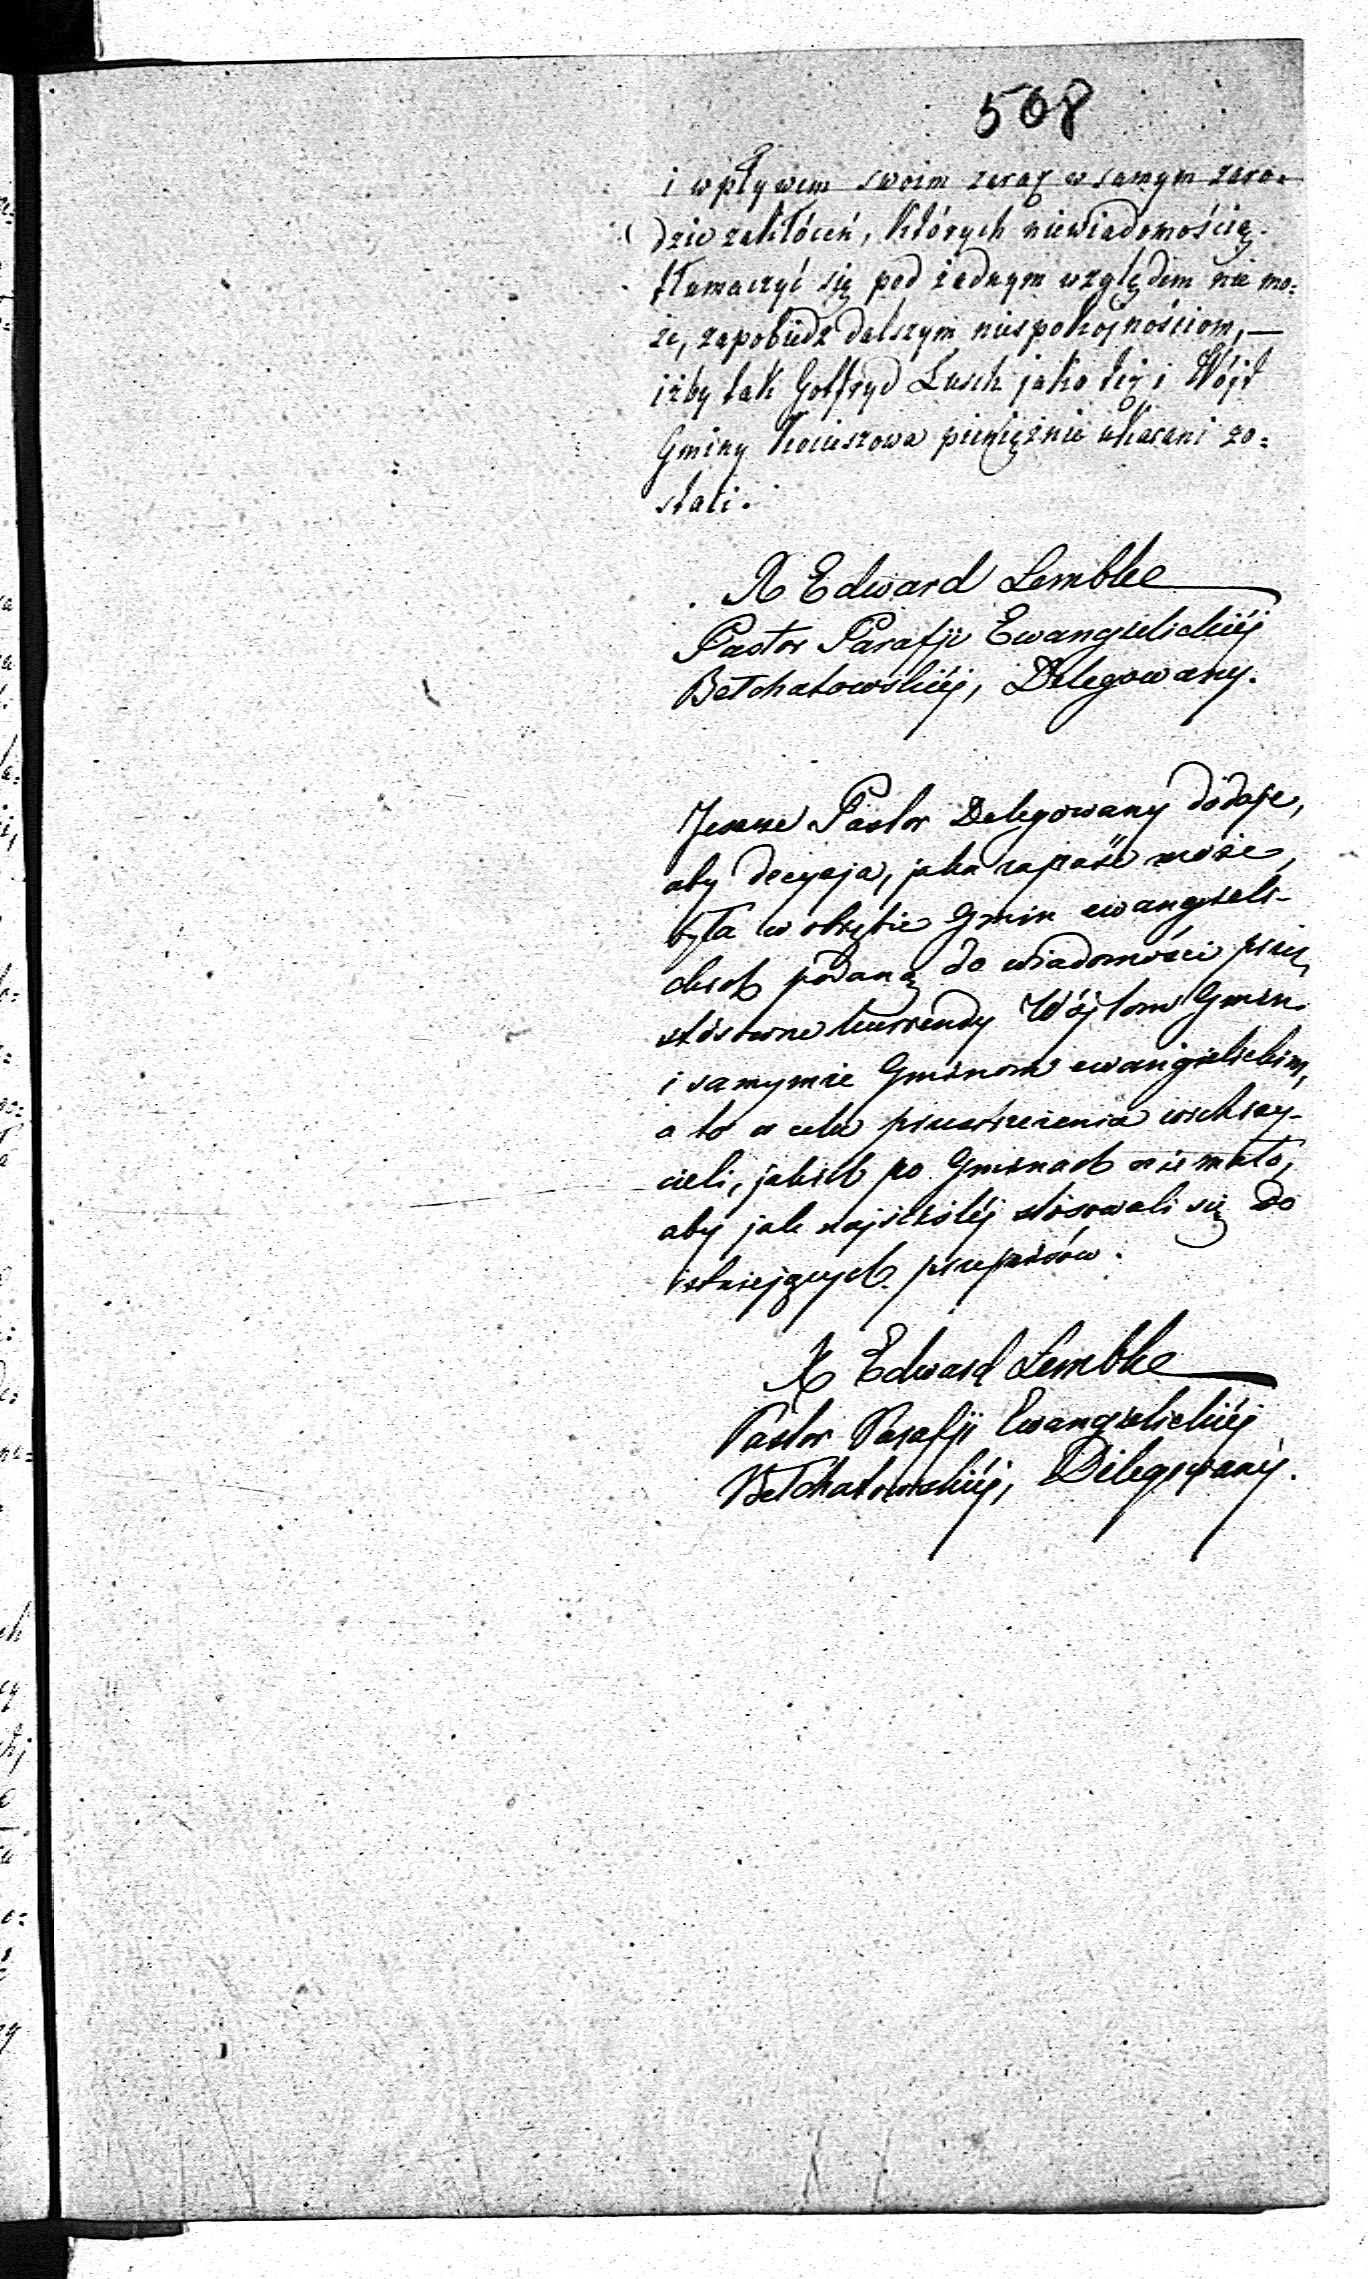 508
i wpływem swoim zaraz w samym zaro=
dzie zakłóceń, których niewiadomością
tłumaczyć się pod żadnym względem nie mo=
że, zapobiedz dalszym niespokójnościom, —
iżby tak Gotfryd Lusch jako też i Wójt
Gminy Kociszowa pieniężnie ukarani zo=
stali.
X Edward Lembke
Pastor Parafji Ewangielickiéj
Bełchatowskiéj, Delegowany.
Jeszcze Pastor Delegowany dodaje,
aby decyzja, jaka zapaść może,
była w obrębie Gmin ewangieli-
ckich podaną do wiadomości przez
stósowne kurrendy Wójtom Gmin
i samymże Gminom ewangielickim,
a to w celu przestrzeżenia wichrzy-
cieli, jakich po Gminach nie mało,
aby jak najściślej stósowali się do
istniejących przepisów.
X Edward Lembke
Pastor Parafji Ewangielickiéj
Bełchatowskiéj, Delegowany.